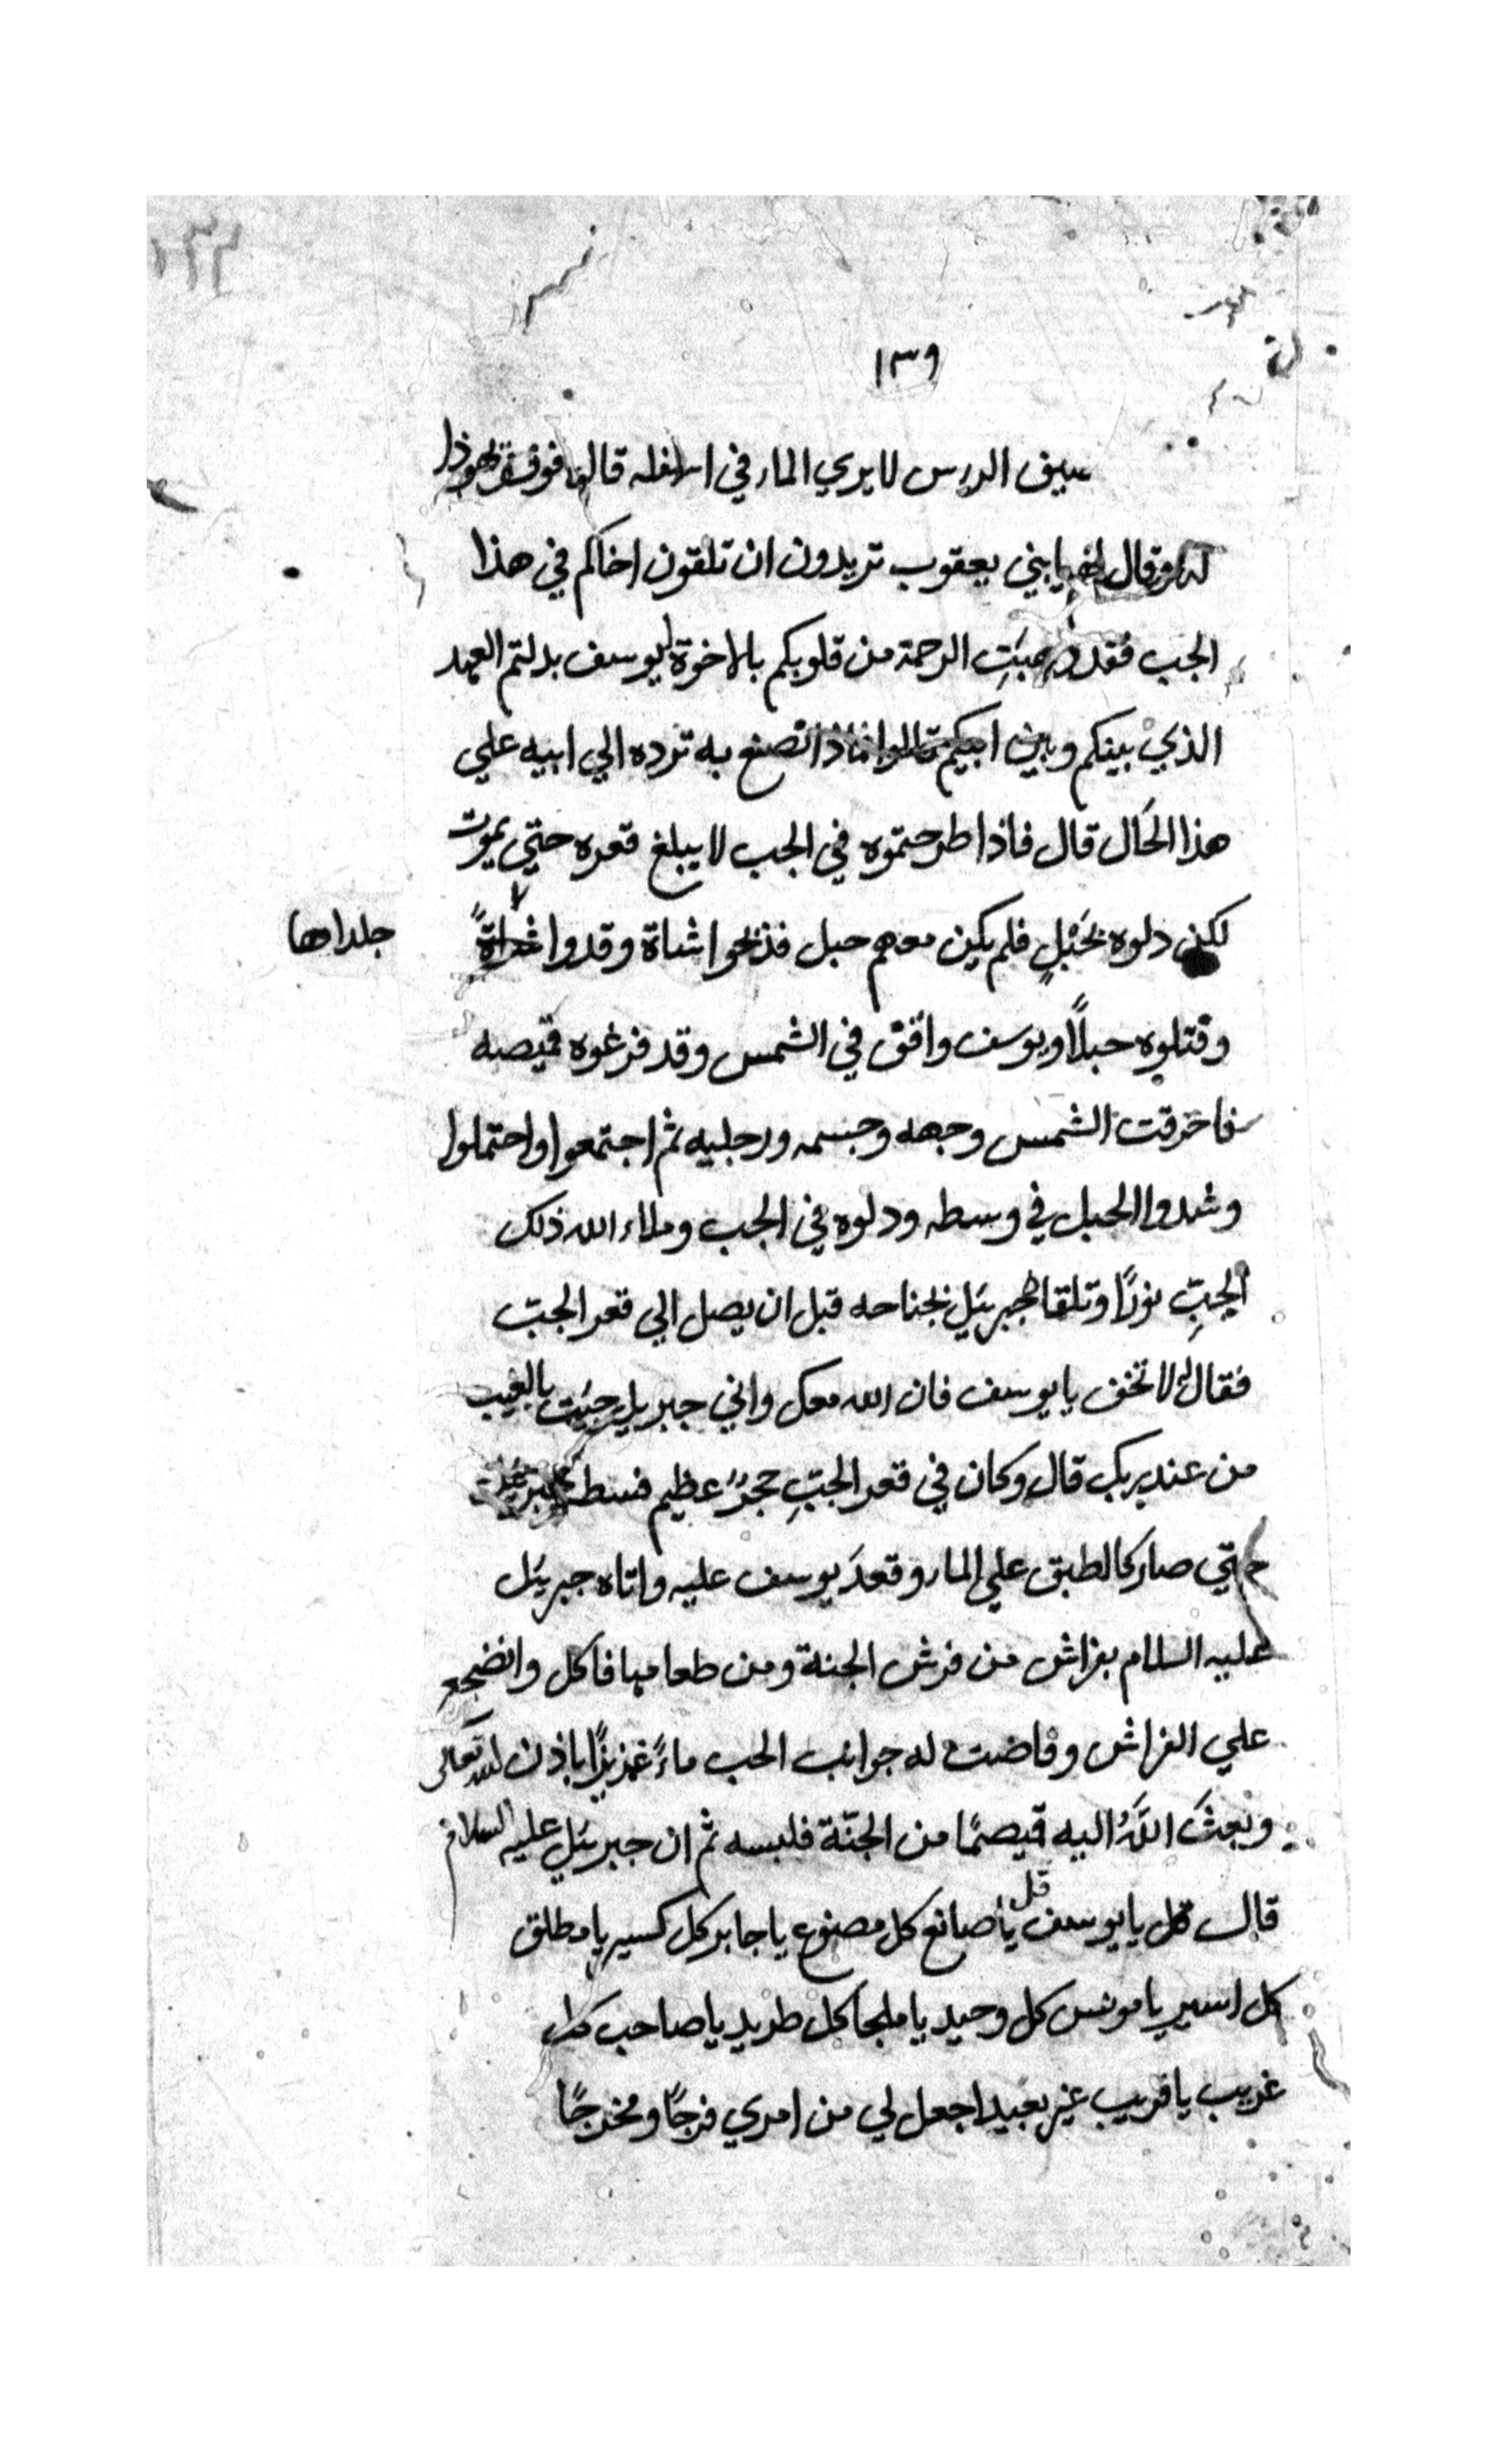 ١٣٩
سيف الدرس لا يري الماء في اسفله قال فوقف يهوذا
وقال لهم يا بني يعقوب تريدون ان تلقون اخاكم في هذا
الجب فقد ذهبَتِ الرحمة من قلوبكم بالاخوة ليوسف بدلتم العهد
الذي بينكم وبين ابيكم قالوا فماذا تصنع به ترده الي ابيه علي
هذا الحَال قال فاذا طرحتموه في الجب لا يبلغ قعره حتي يموت
لكن دلوه بحَبْلٍ فلم يكين معهم حبل فذبحوا شاة وقدوا
جلداها
وفتلوه حبلاً ويوسف واقف في الشمس وقد فزعوه قميصه
فاحرقت الشمس وجهه وجسمه ورجليه ثم اجتمعوا واحتملوا
وشدوا الحبل في وسطه ودلوه في الجب وملاء الله ذلك
الجبِّ نورًا وتلقاه جبرئيل بجناحه قبل ان يصل الي قعر الجبّ
فقال له لا تخف يا يوسف فان الله معك واني جبريل جئت بالغيب
من عند ربك قال وكان في قعر الجبِّ حجرٌ عظيم فبسطه
حتي صار كالطبق علي الماء وقعدَ يوسف عليه واتاه جبرئيل
عليه السلام بفراش من فرش الجنة ومن طعامها فاكل وانضجع
علي الفراش وفاضت له جوانب الجب ماءً غزيزًا باذن الله تعالى
وبعثَ اللَّهُ اليه قميصًا من الجنّة فلبسه ثم ان جبرئيل عليه السلام
قال قل يا يوسف قل يا صانع كل مصنوع يا جابر كل كسير يا مطلق
كل اسير يا مونس كل وحيد يا ملجا كل طريد يا صاحب كل
غريب يا قريب غير بعيد اجعل لي من امري فرجًا ومخرجًا